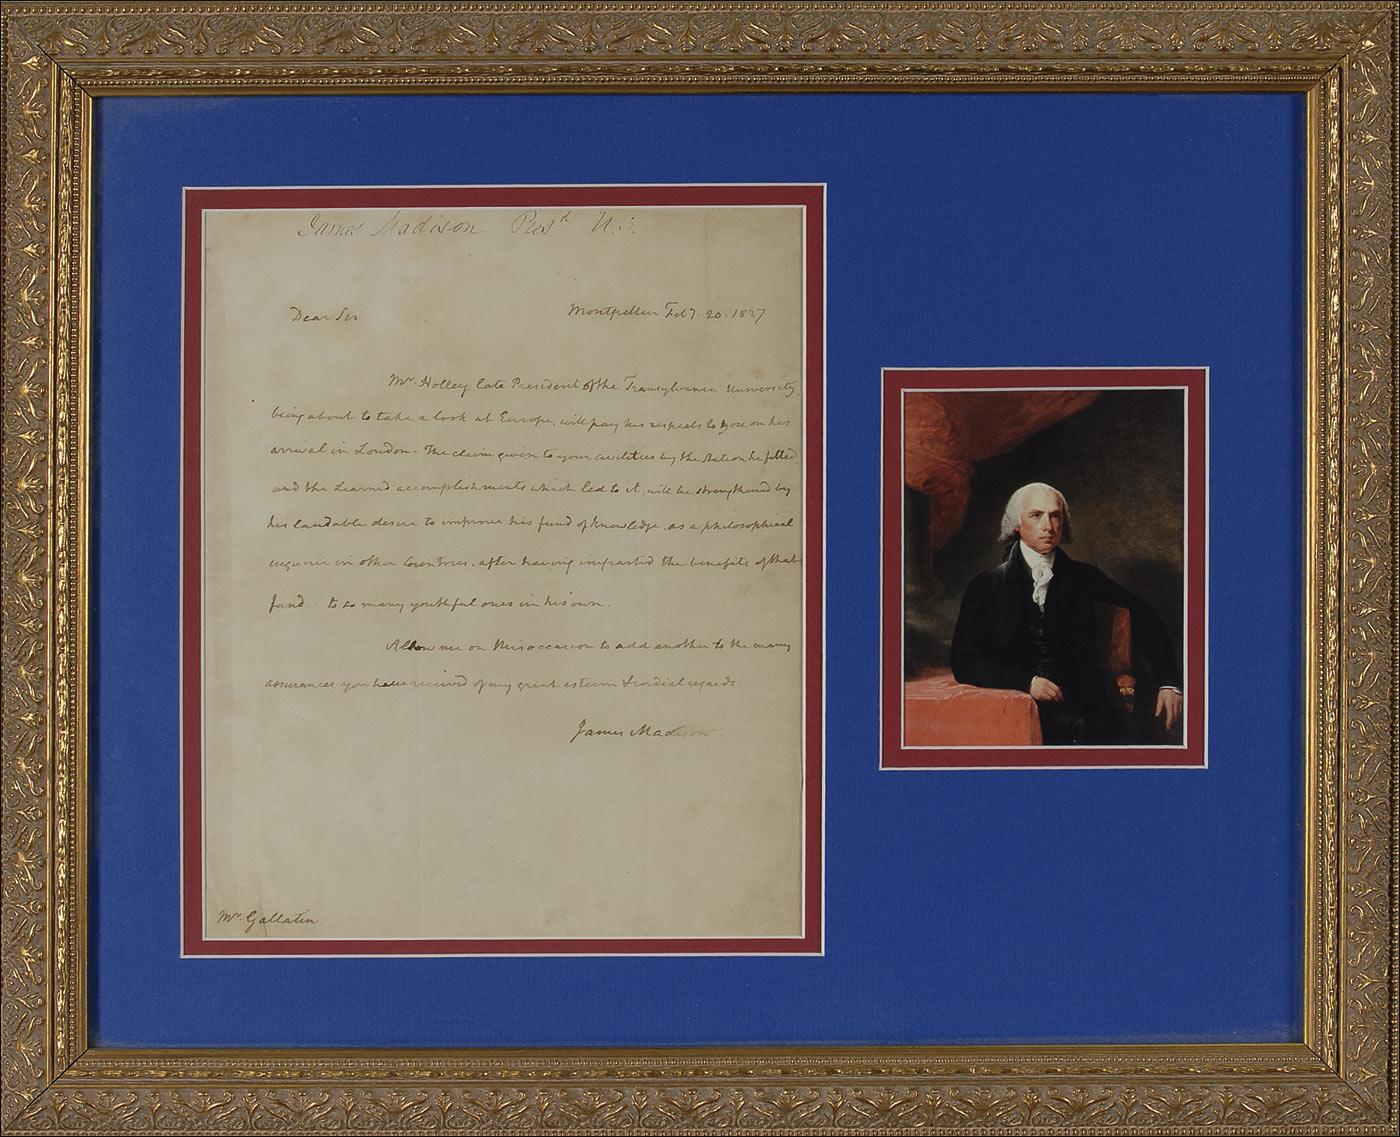 James Madison. Presd. U.S.
Dear Sir
Montpellier Feby. 20. 1827
Mr. Holley late President of the Transylvania University,
being about to take a look at Europe, will pay his respects to you on his
arrival in London. The claim given to your civilities by the Station he filled
and the Learned accomplishments which led to it, will be strengthened by
his laudable desire to improve his fund of knowledge, as a philosophical
inquirer in other Countries, after having imparted the benefits of that
fund to so many youthful ones in his own.
Allow me on this occasion to add another to the many
assurances you have received of my great esteem & cordial regards.
James Madison
Mr. Gallatin